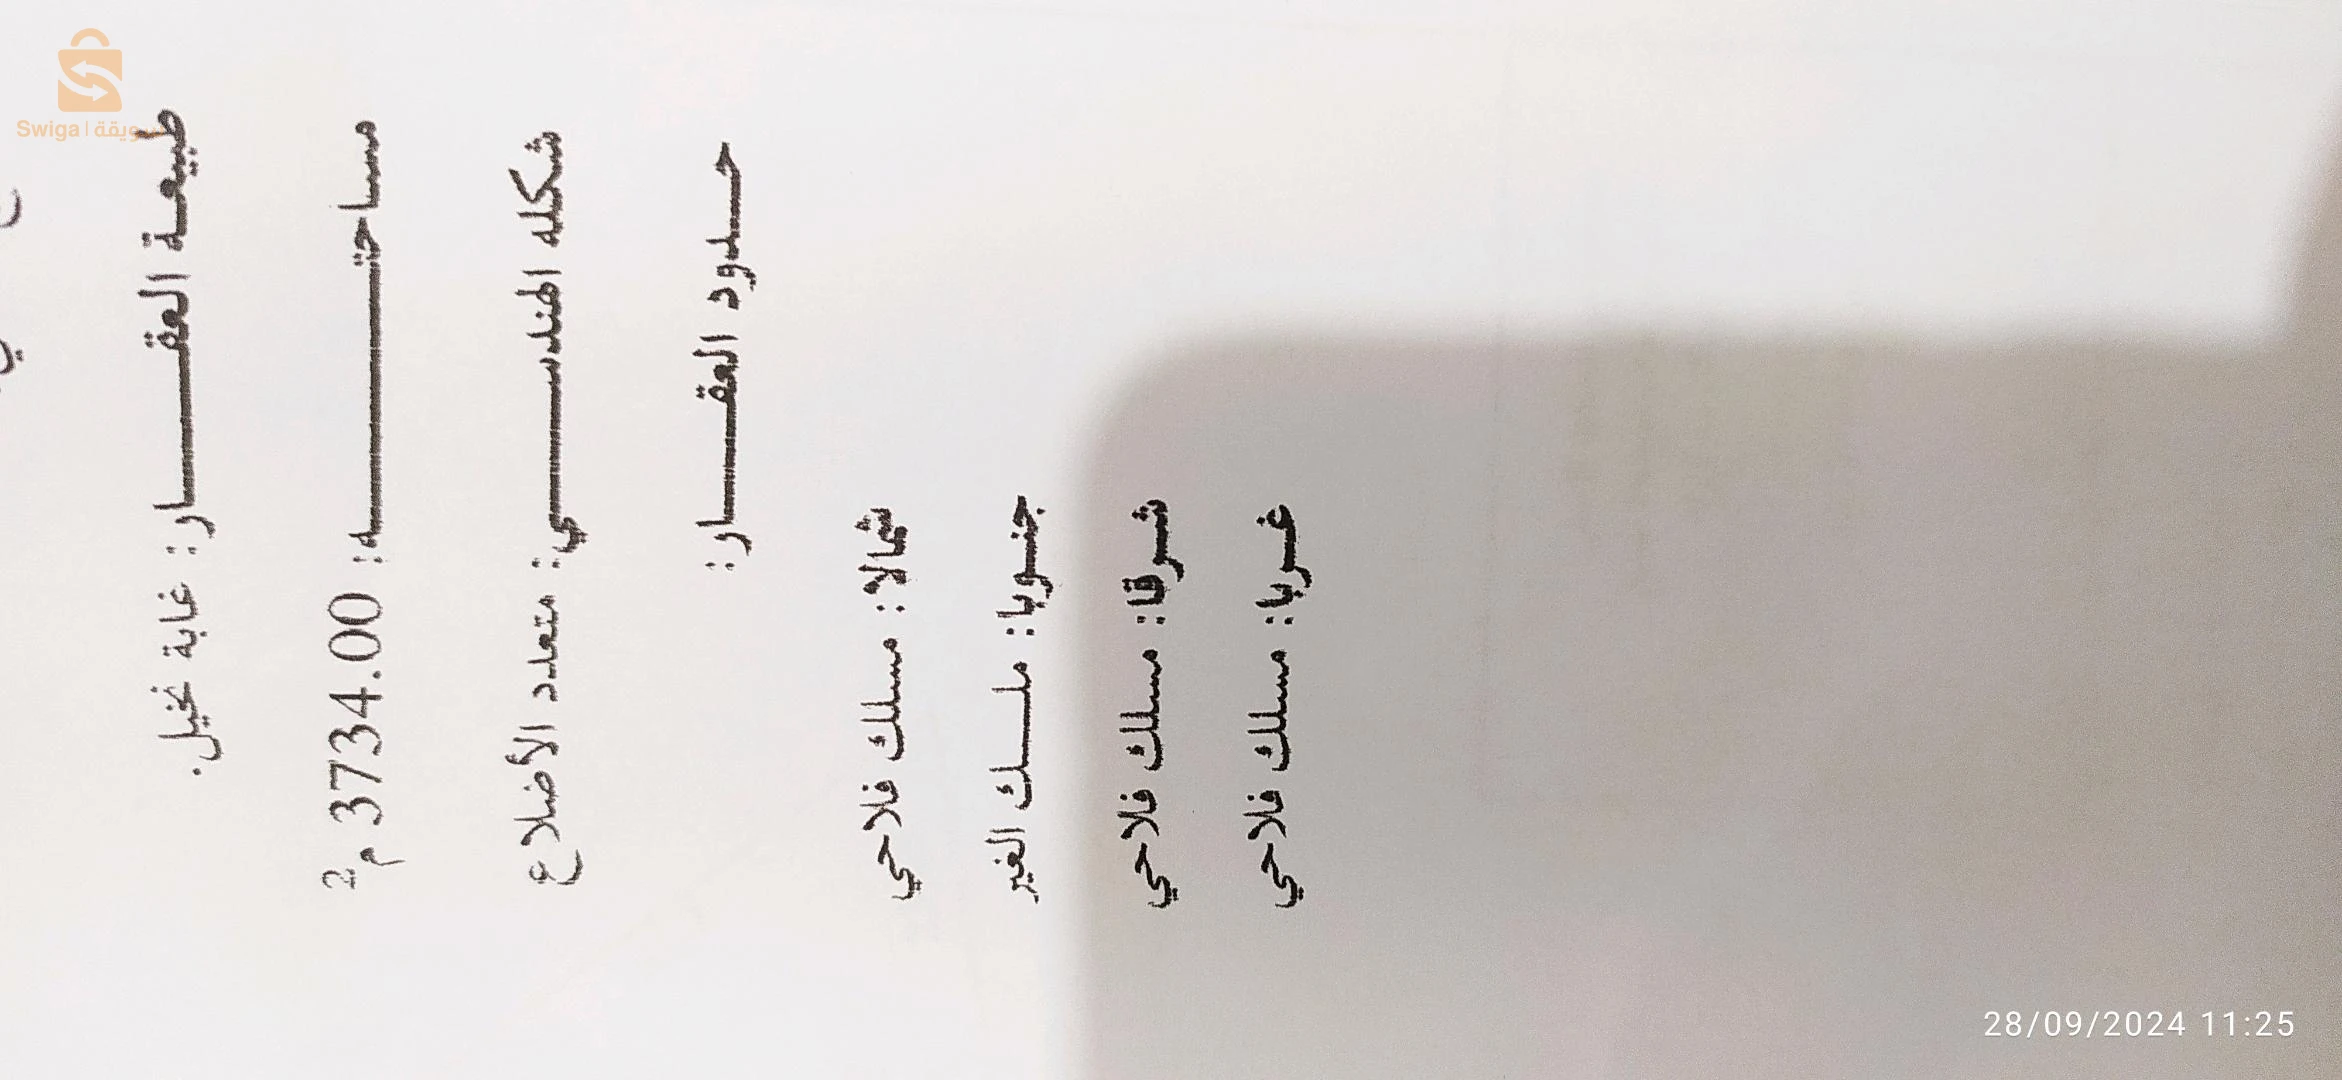 طبيعة العقار: غابة نخيل.
مساحته: 3734.00 م2
شكله الهندسي: متعدد الأضلاع
حدود العقار:
شمالا: مسلك فلاحي
جنوبا: ملك الغير
شرقا: مسلك فلاحي
غربا: مسلك فلاحي
Swiga | سويقة
28/09/2024 11:25